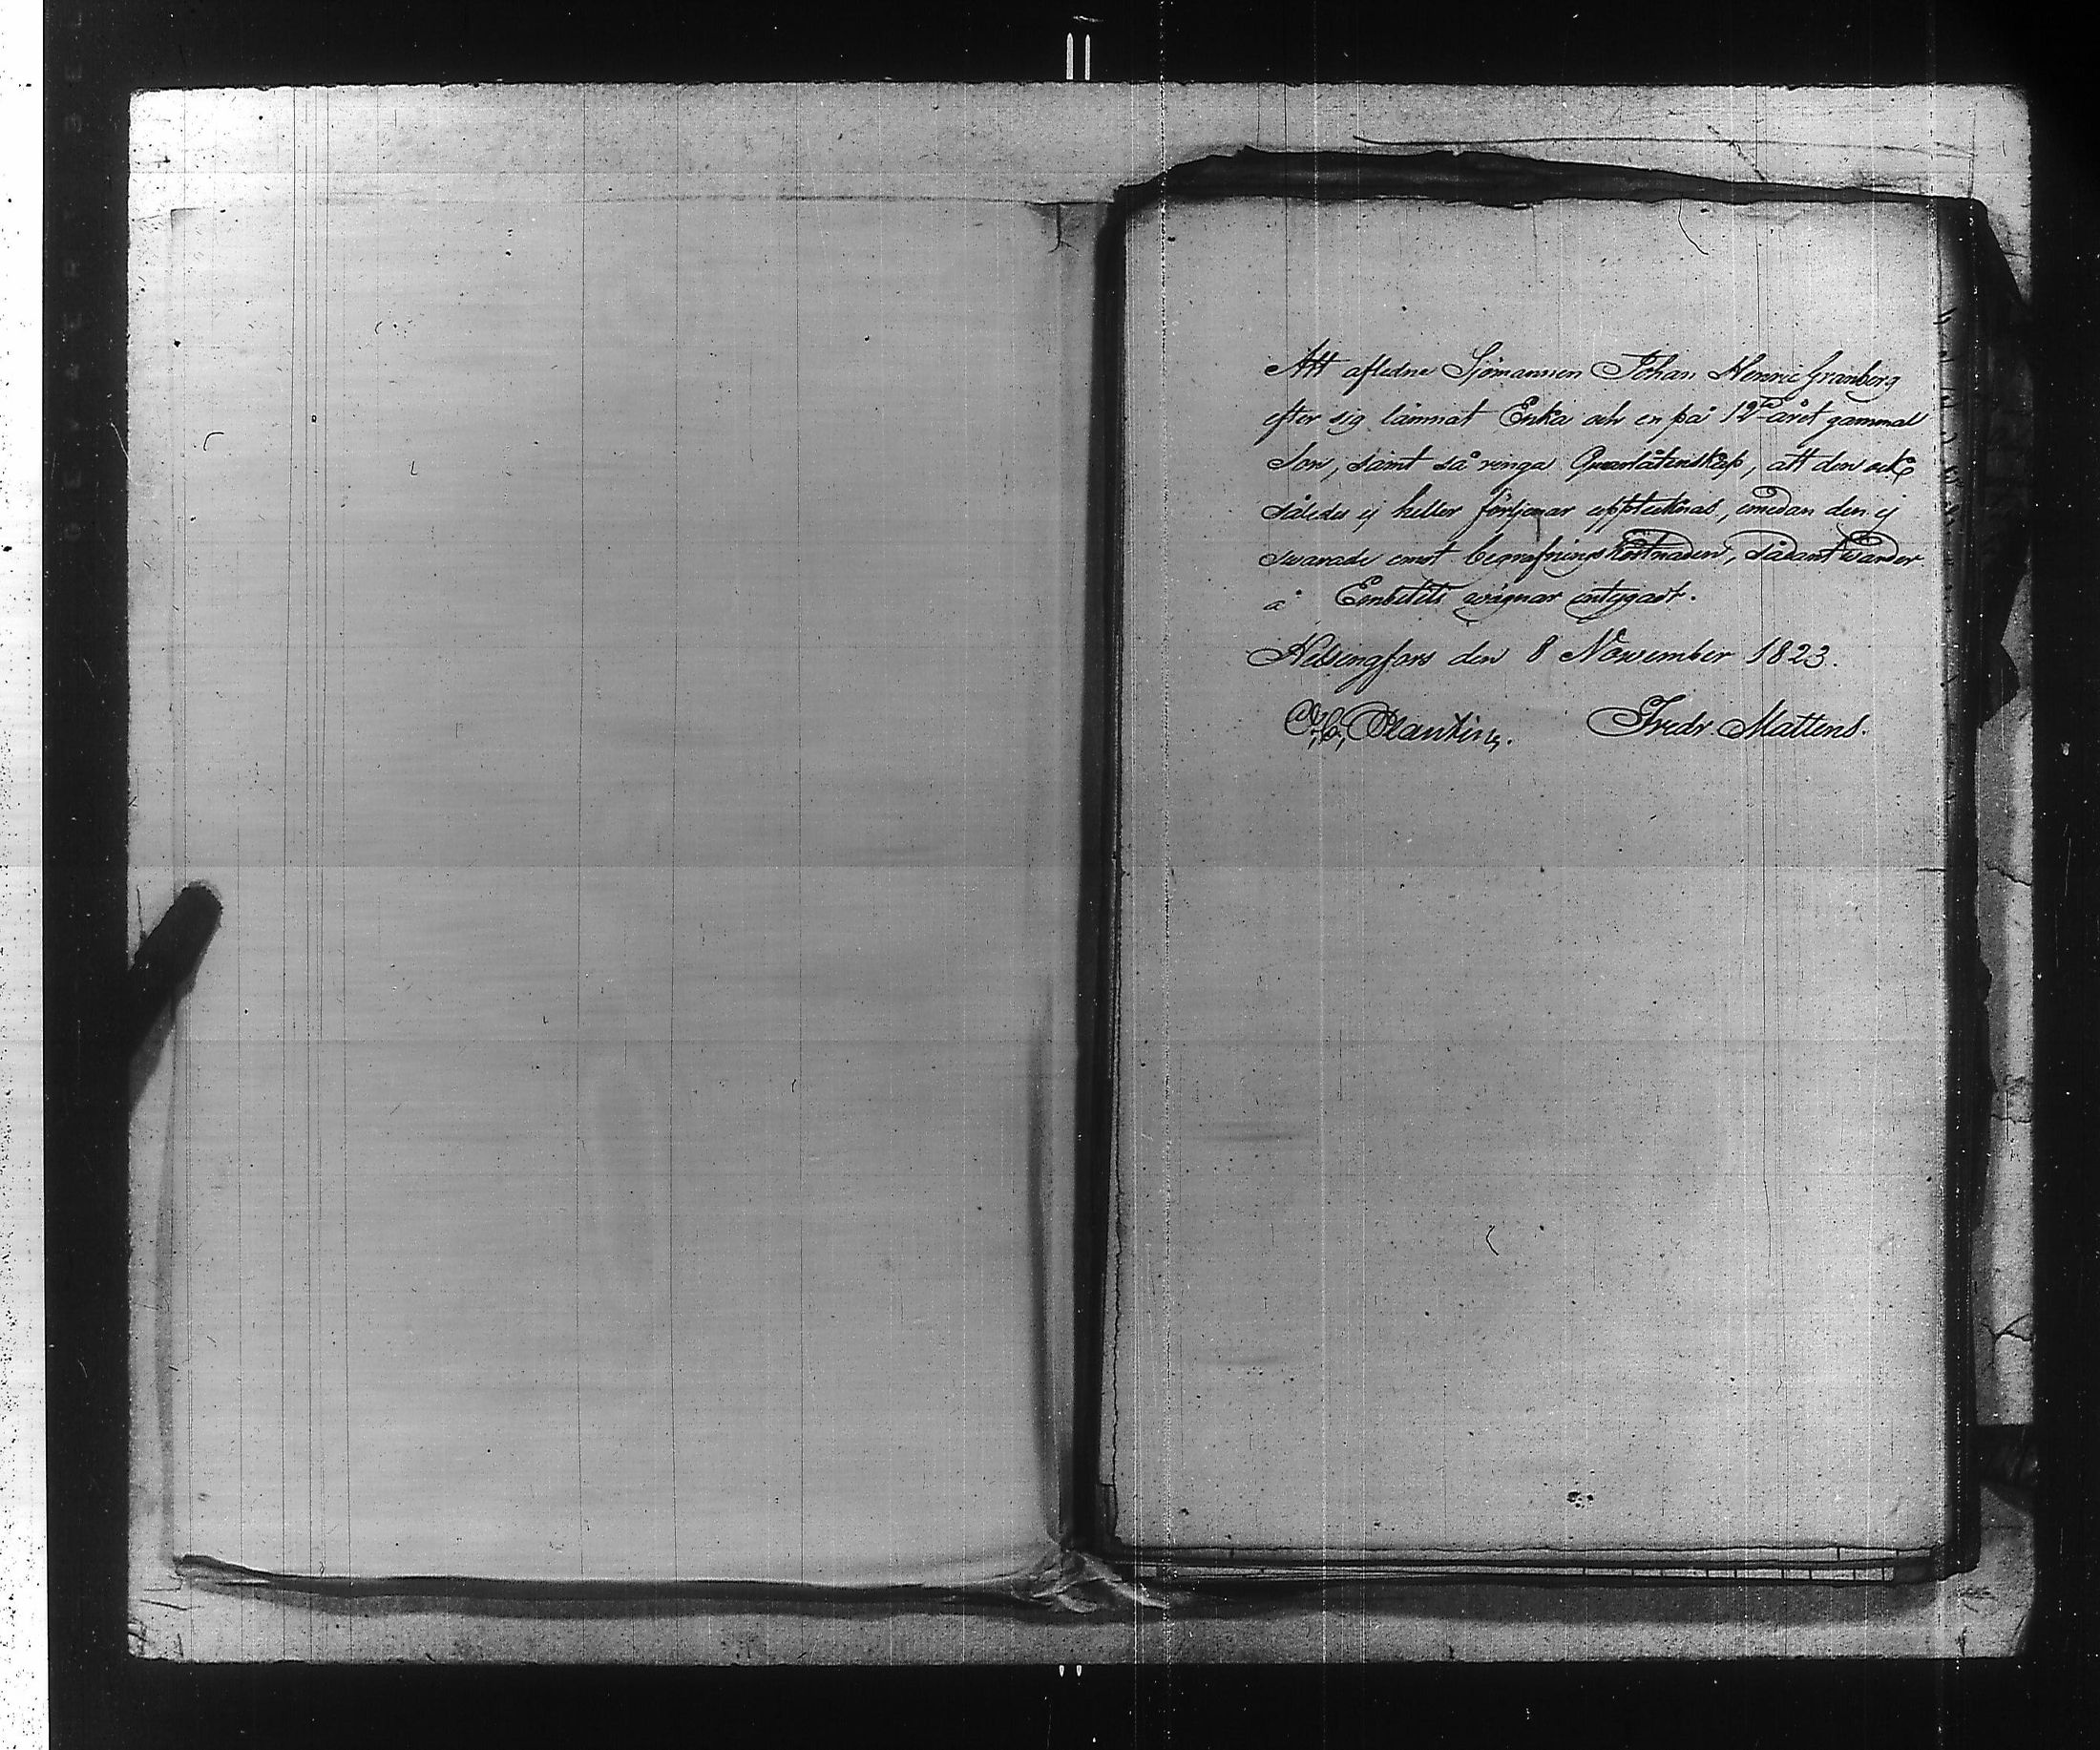 Att aflidne Sjömannen Johan Henric Granberg
efter sig lämnat Enka och en på 12te året gammal
Son, samt så ringa Quarlåtenskap, att den ock
således ej heller förtjenar upptecknas, emedan den ej
swarade emot begrafningskostnaden, sådant warder
å Embetets wägnar intygadt.
Helsingfors den 8 November 1823.
Fredr. Mattens.